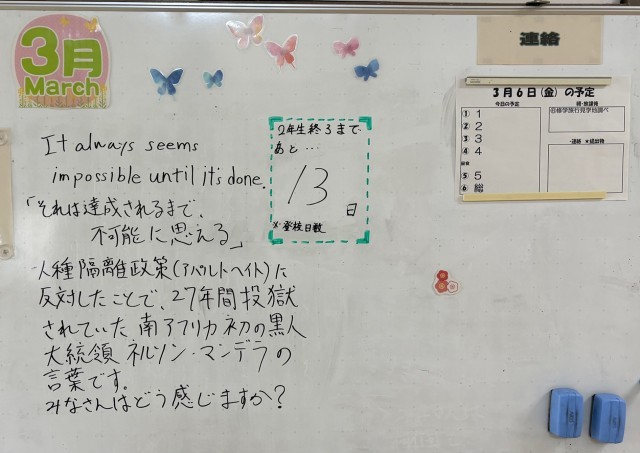 3月
March
It always seems
impossible until it's done.
「それは達成されるまで、
不可能に思える」
人種隔離政策(アパルトヘイト)に
反対したことで、27年間投獄
されていた南アフリカ初の黒人
大統領 ネルソン・マンデラの
言葉です。
みなさんはどう感じますか?
2年生終了まで
あと…
13
日
※登校日数
連絡
3月6日(金)の予定
今日の予定
① 1
② 2
③ 3
④ 4
⑤ 5
⑥ 総
朝・放課後
④修学旅行見学地調べ